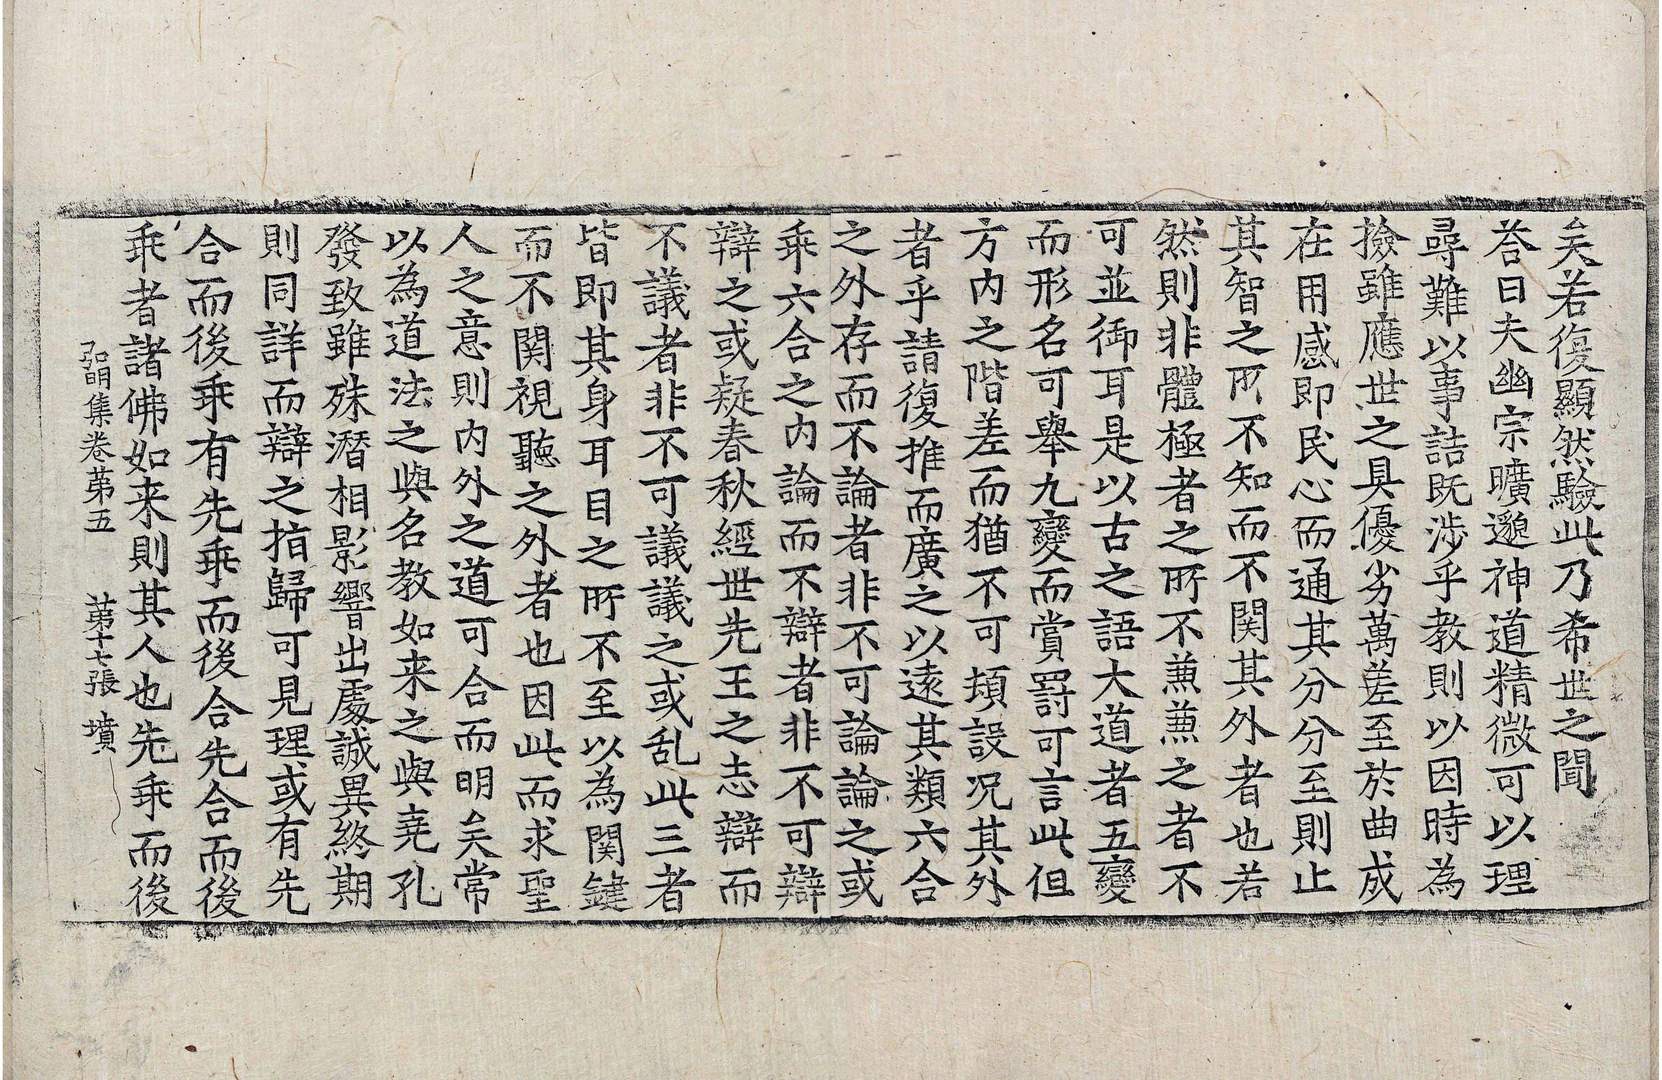 矣若復顯然驗此乃希世之聞
荅曰夫幽宗曠邈神道精微可以理
尋難以事詰既涉乎教則以因時為
撿雖應世之具優劣萬差至於曲成
在用感即民心而通其分分至則止
其智之所不知而不関其外者也若
然則非體極者之所不兼兼之者不
可並御耳是以古之語大道者五變
而形名可舉九變而賞罸可言此但
方内之階差而猶不可頓設况其外
者乎請復推而廣之以遠其類六合
之外存而不論者非不可論論之或
乖六合之内論而不辯者非不可辯
辯之或疑春秋經世先王之志辯而
不議者非不可議議之或乱此三者
皆即其身耳目之所不至以為関鍵
而不関視聽之外者也因此而求聖
人之意則内外之道可合而明矣常
以為道法之與名教如来之與堯孔
發致雖殊潛相影響出處誠異終期
則同詳而辯之指歸可見理或有先
合而後乖有先乖而後合先合而後
乖者諸佛如来則其人也先乖而後
弘明集卷苐五 苐十七張 墳